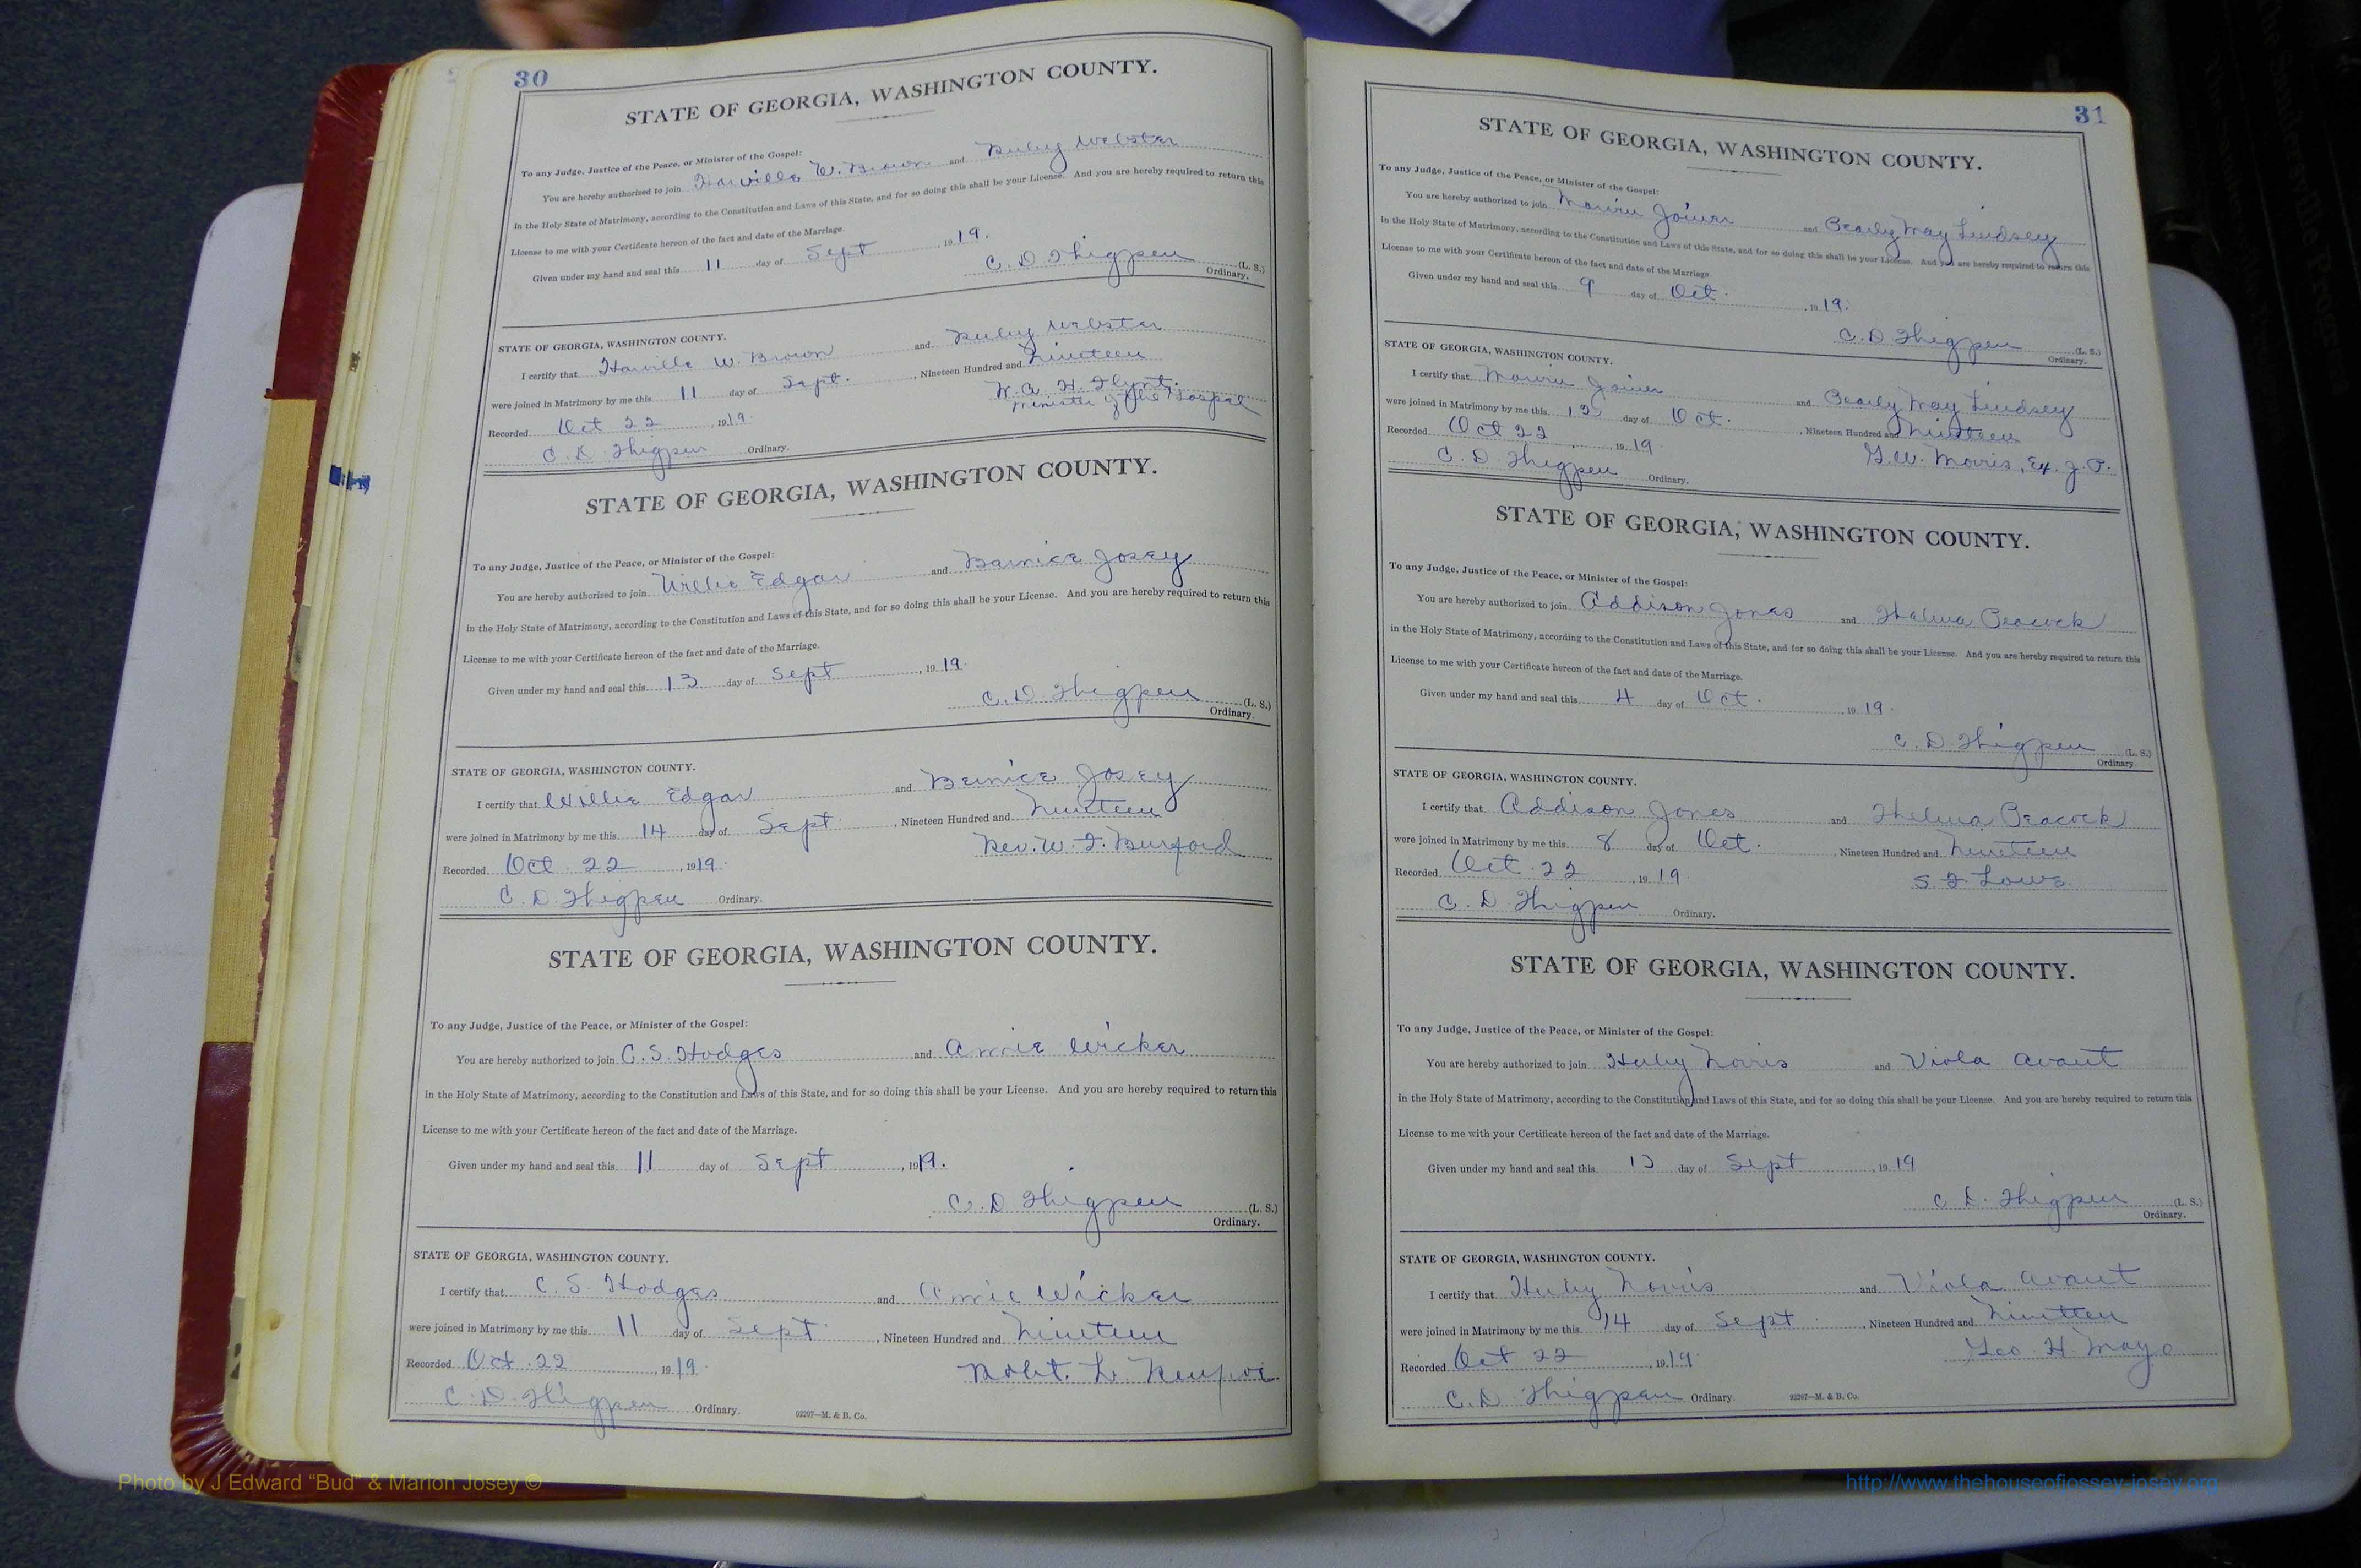 30
STATE OF GEORGIA, WASHINGTON COUNTY.
To any Judge, Justice of the Peace, or Minister of the Gospel:
You are hereby authorized to join Harville W. Brown and Ruby Webster
in the Holy State of Matrimony, according to the Constitution and Laws of this State, and for so doing this shall be your License. And you are hereby required to return this
License to me with your Certificate hereon of the fact and date of the Marriage.
Given under my hand and seal this 11 day of Sept , 19 19.
C. D. Thigpen (L. S.)
Ordinary.
STATE OF GEORGIA, WASHINGTON COUNTY.
I certify that Harville W. Brown and Ruby Webster
were joined in Matrimony by me this 11 day of Sept. , Nineteen Hundred and Nineteen
W. A. H. Flynt.
Minister of the Gospel
Recorded Oct 22 , 1919.
C. D. Thigpen Ordinary.
STATE OF GEORGIA, WASHINGTON COUNTY.
To any Judge, Justice of the Peace, or Minister of the Gospel:
You are hereby authorized to join Willie Edgar and Bernice Josey
in the Holy State of Matrimony, according to the Constitution and Laws of this State, and for so doing this shall be your License. And you are hereby required to return this
License to me with your Certificate hereon of the fact and date of the Marriage.
Given under my hand and seal this 13 day of Sept , 19 19.
C. D. Thigpen (L. S.)
Ordinary.
STATE OF GEORGIA, WASHINGTON COUNTY.
I certify that Willie Edgar and Bernice Josey
were joined in Matrimony by me this 14 day of Sept. , Nineteen Hundred and Nineteen
Recorded Oct. 22 , 1919. Rev. W. F. Burford
C. D Thigpen Ordinary.
STATE OF GEORGIA, WASHINGTON COUNTY.
To any Judge, Justice of the Peace, or Minister of the Gospel:
You are hereby authorized to join C. S. Hodges and Annie Wicker
in the Holy State of Matrimony, according to the Constitution and Laws of this State, and for so doing this shall be your License. And you are hereby required to return this
License to me with your Certificate hereon of the fact and date of the Marriage.
Given under my hand and seal this 11 day of Sept , 1919.
C. D Thigpen (L. S.)
Ordinary.
STATE OF GEORGIA, WASHINGTON COUNTY.
I certify that C. S. Hodges and Annie Wicker
were joined in Matrimony by me this 11 day of Sept. , Nineteen Hundred and Nineteen
Recorded Oct. 22 , 1919. Robt. L.
C. D. Thigpen Ordinary.
92297—M. & B. Co.
31
STATE OF GEORGIA, WASHINGTON COUNTY.
To any Judge, Justice of the Peace, or Minister of the Gospel:
You are hereby authorized to join Joiner and Pearly May Lindsey
in the Holy State of Matrimony, according to the Constitution and Laws of this State, and for so doing this shall be your License. And you are hereby required to return this
License to me with your Certificate hereon of the fact and date of the Marriage.
Given under my hand and seal this 9 day of Oct. , 19 19.
C. D Thigpen (L. S.)
Ordinary.
STATE OF GEORGIA, WASHINGTON COUNTY.
I certify that Joiner and Pearly May Lindsey
were joined in Matrimony by me this day of Oct. , Nineteen Hundred and Nineteen
Recorded Oct 22 , 19 19. G. W. Morris, Ex. J. P.
C. D. Thigpen Ordinary.
STATE OF GEORGIA, WASHINGTON COUNTY.
To any Judge, Justice of the Peace, or Minister of the Gospel:
You are hereby authorized to join Addison Jones and Thelma Peacock
in the Holy State of Matrimony, according to the Constitution and Laws of this State, and for so doing this shall be your License. And you are hereby required to return this
License to me with your Certificate hereon of the fact and date of the Marriage.
Given under my hand and seal this 4 day of Oct. , 19 19.
C. D Thigpen (L. S.)
Ordinary.
STATE OF GEORGIA, WASHINGTON COUNTY.
I certify that Addison Jones and Thelma Peacock
were joined in Matrimony by me this 8 day of Oct. , Nineteen Hundred and Nineteen
Recorded Oct. 22 , 19 19. S. F. Lowe.
C. D. Thigpen Ordinary.
STATE OF GEORGIA, WASHINGTON COUNTY.
To any Judge, Justice of the Peace, or Minister of the Gospel:
You are hereby authorized to join Huby Norris and Viola Avant
in the Holy State of Matrimony, according to the Constitution and Laws of this State, and for so doing this shall be your License. And you are hereby required to return this
License to me with your Certificate hereon of the fact and date of the Marriage.
Given under my hand and seal this 13 day of Sept , 19 19
C. D. Thigpen (L. S.)
Ordinary.
STATE OF GEORGIA, WASHINGTON COUNTY.
I certify that Huby Norris and Viola Avant
were joined in Matrimony by me this 14 day of Sept , Nineteen Hundred and Nineteen
Recorded Oct 22 , 1919. Geo. H. Mayo
C. D. Thigpen Ordinary.
92297—M. & B. Co.
Photo by J Edward "Bud" & Marion Josey ©
http://www.thehouseofjossey-josey.org